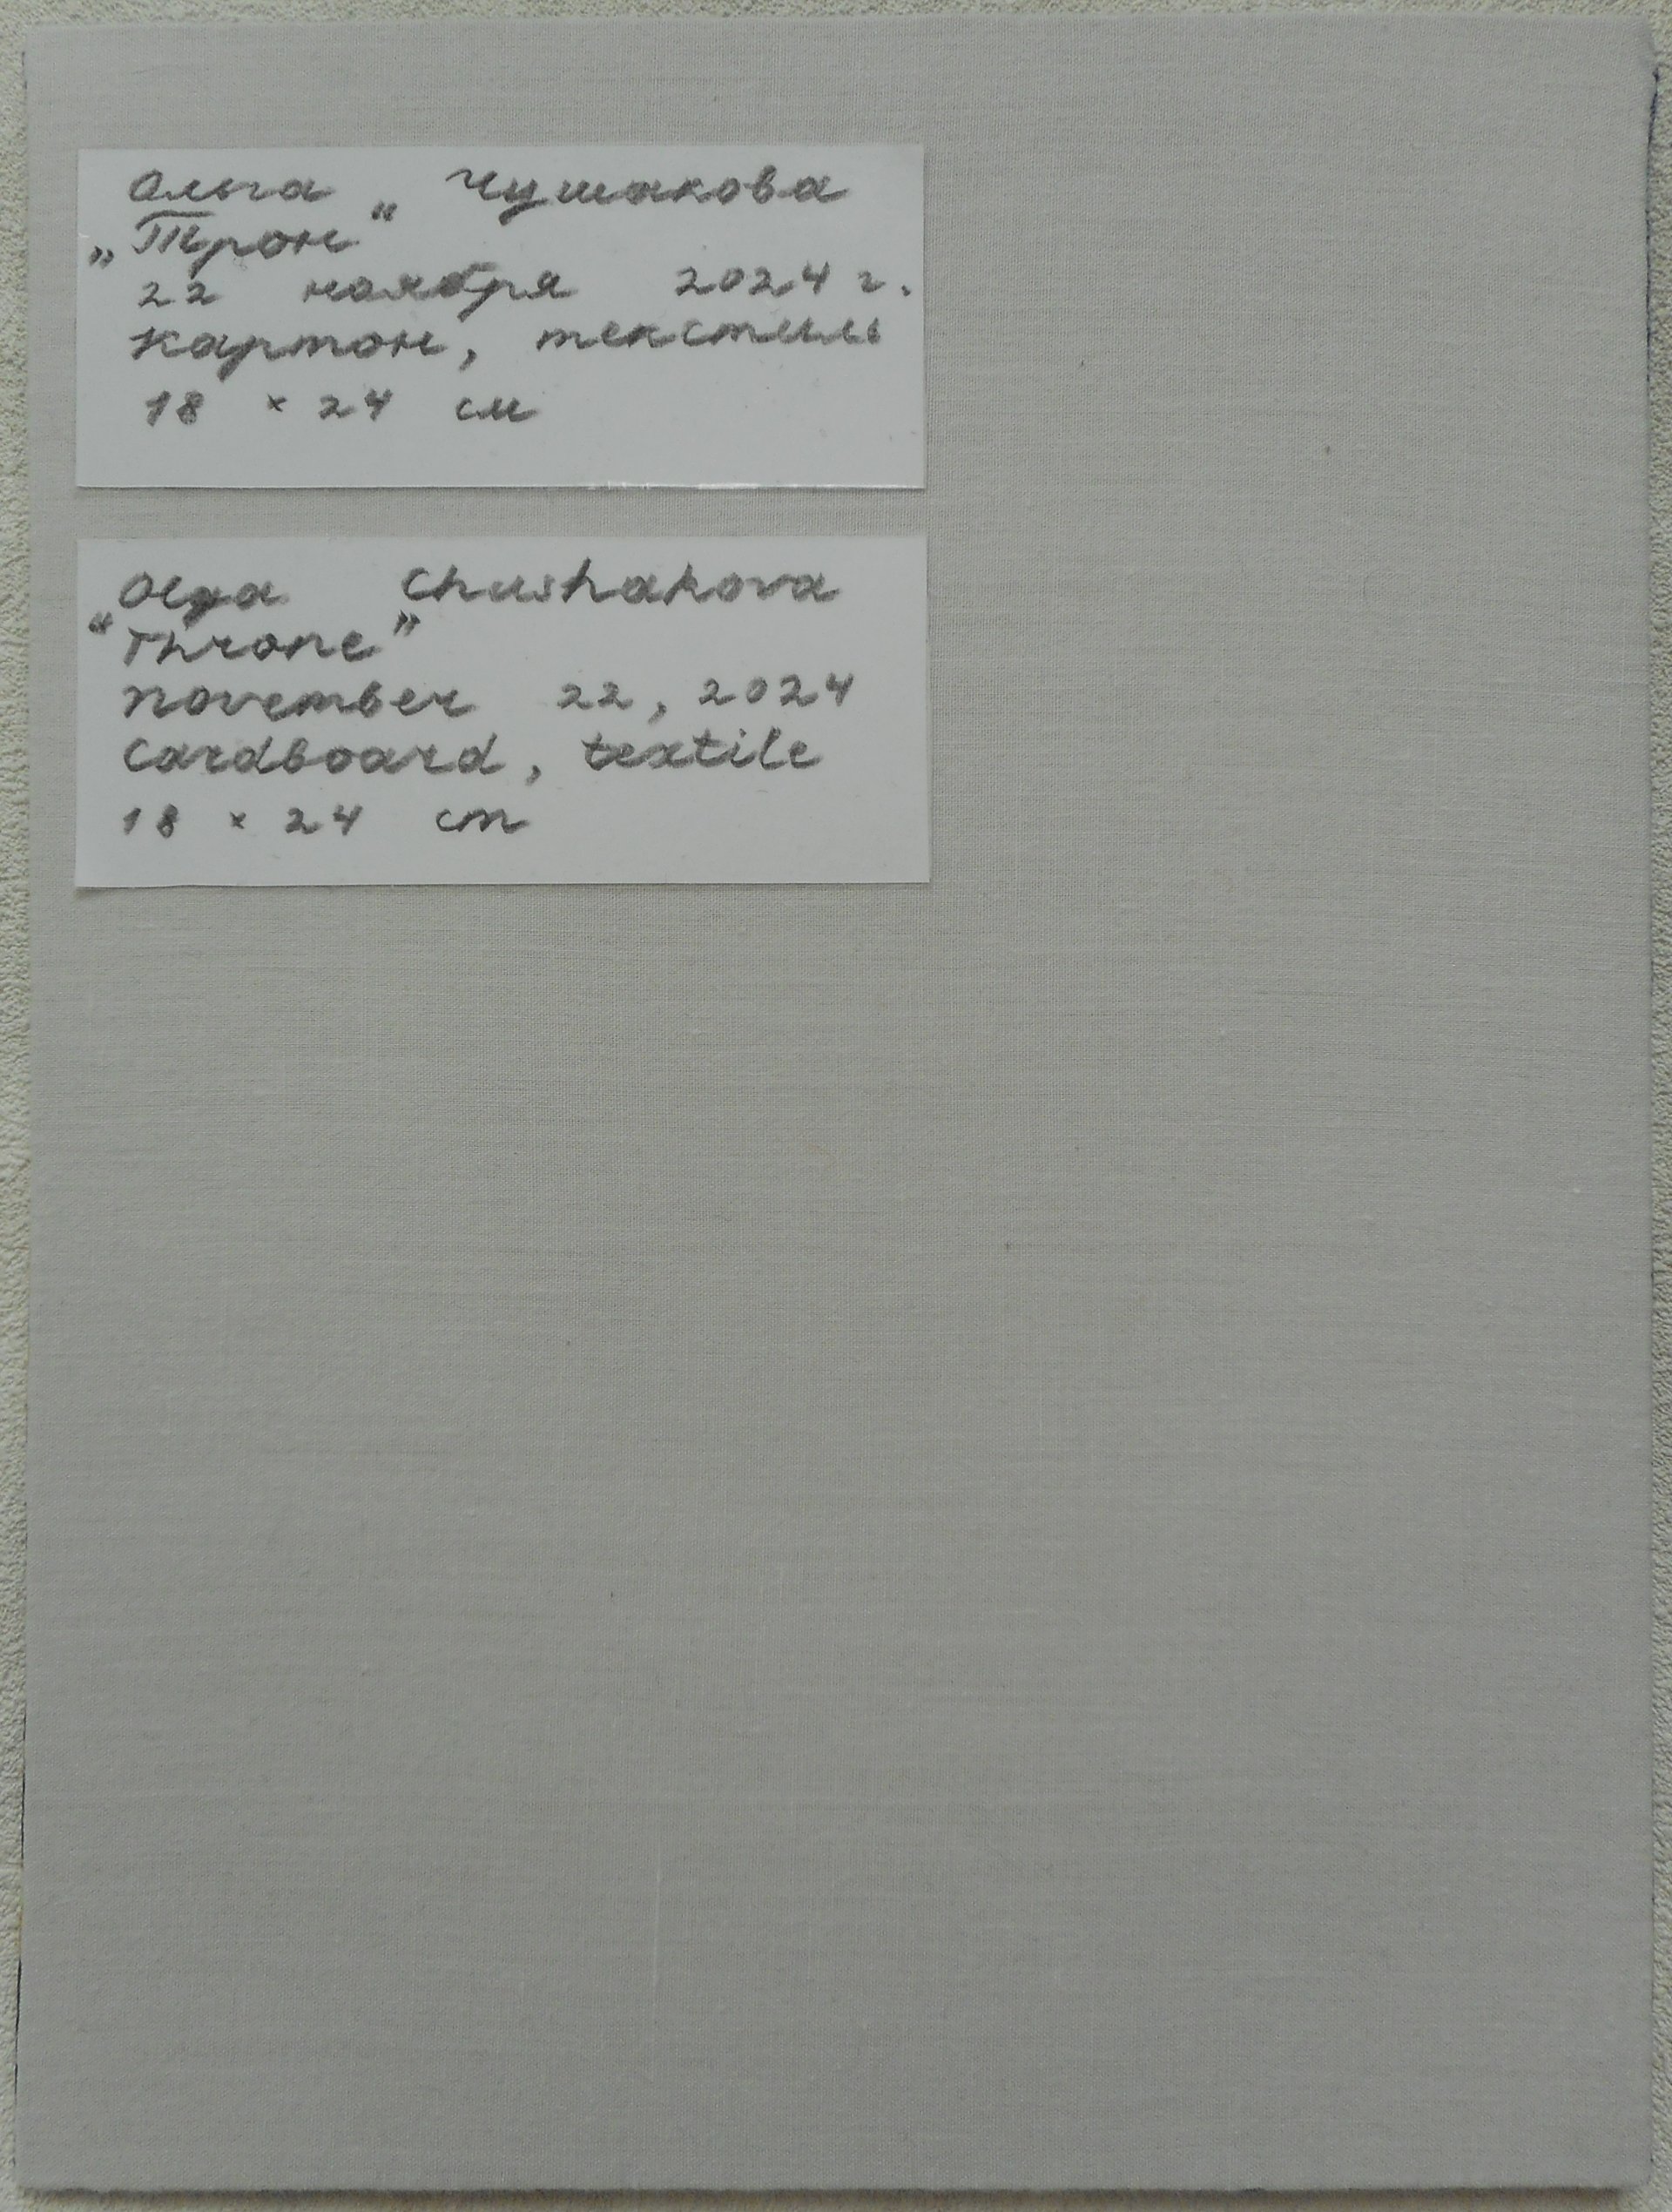 Ольга Чушакова
„Трон“
22 ноября 2024 г.
картон, текстиль
18 × 24 см
Olga Chushakova
“Throne”
november 22, 2024
cardboard, textile
18 × 24 cm